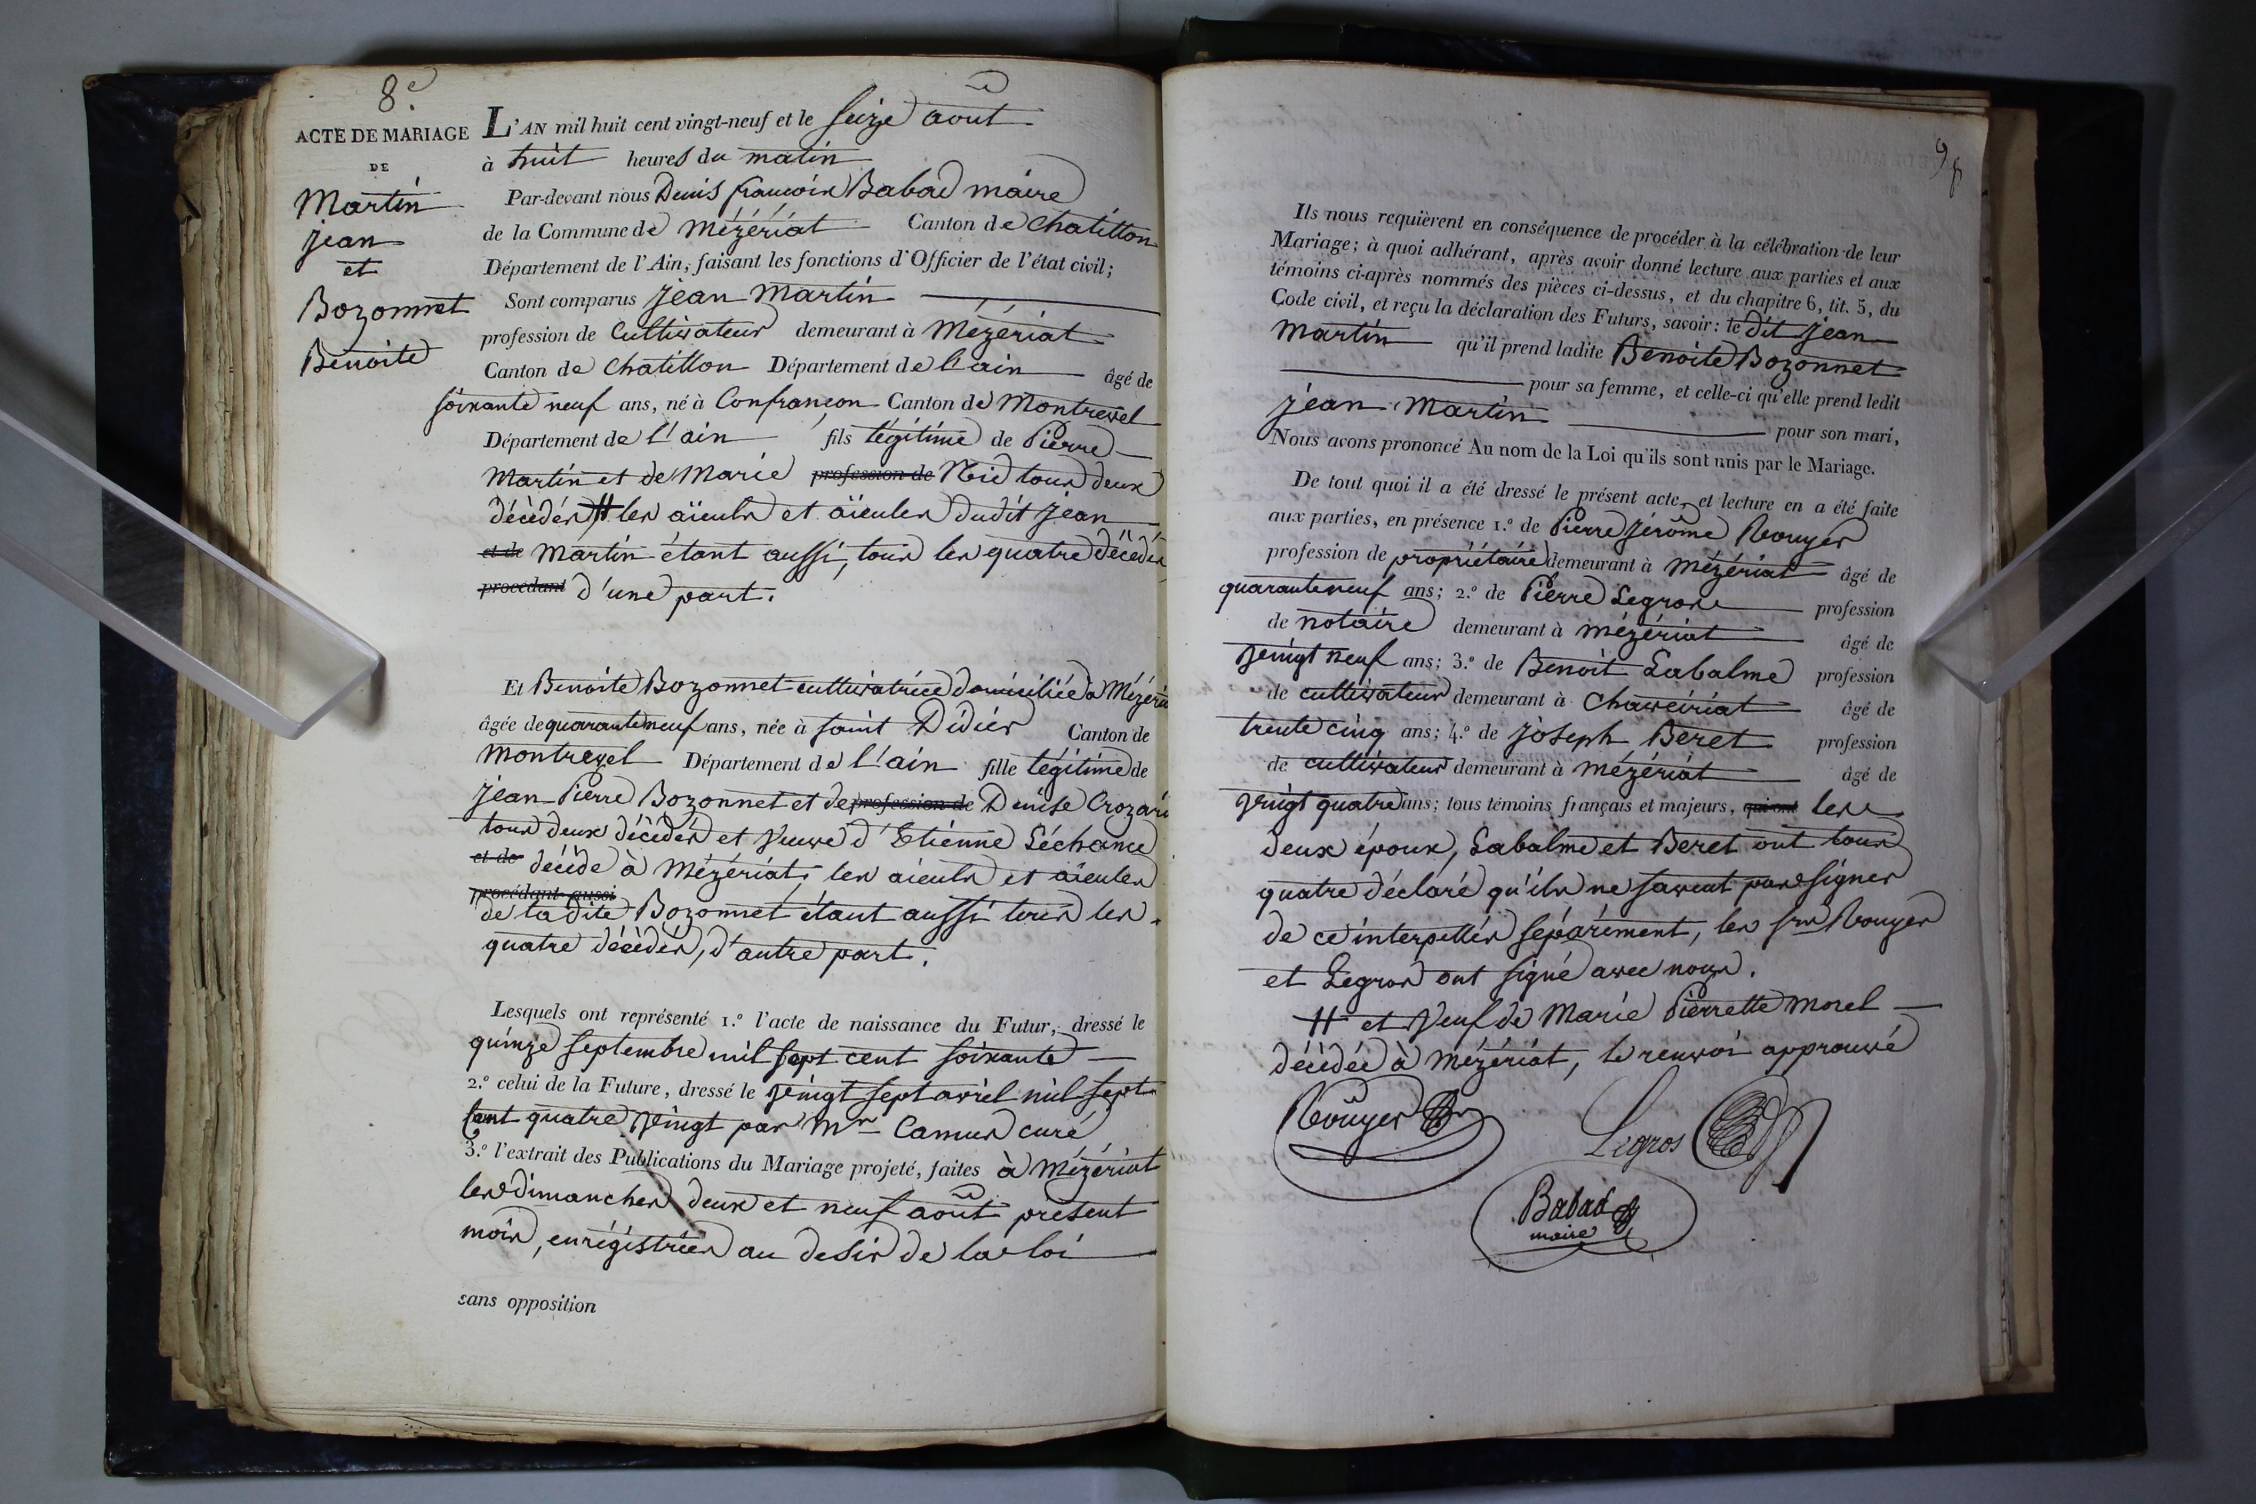 8.e
ACTE DE MARIAGE
DE
Martin
jean
et
Bozonnet
Benoite
L'AN mil huit cent vingt-neuf et le seize août
à huit heures du matin
Par-devant nous Denis françois Babad maire
de la Commune de Mézériat Canton de Chatillon
Département de l'Ain, faisant les fonctions d'Officier de l'état civil;
Sont comparus jean Martin
profession de Cultivateur demeurant à Mézériat
Canton de Chatillon Département de l'ain âgé de
soixante neuf ans, né à Confrançon Canton de Montrevel
Département de l'ain fils légitime de Pierre
Martin et de Marie profession de Nid tous deux
décédés H les aïeuls et aïeules dudit jean
et de Martin étant aussi, tous les quatre décédés
procédant d'une part.
Et Benoite Bozonnet cultivatrice domiciliée à Mézéria
âgée de quarante neuf ans, née à saint Didier Canton de
Montrevel Département de l'ain fille légitime de
jean Pierre Bozonnet et de profession de Denise
tous deux décédés et veuve d'Etienne Léchance
et de décédé à Mézériat, les aieuls et aïeules
procédant aussi
de la dite Bozonnet étant aussi tous les
quatre décédés, d'autre part.
Lesquels ont représenté 1.º l'acte de naissance du Futur, dressé le
quinze septembre mil sept cent soixante
2.º celui de la Future, dressé le vingt sept avril mil sept
cent quatre vingt par Mr Camus curé
3.º l'extrait des Publications du Mariage projeté, faites à Mézériat
les dimanches deux et neuf août présent
mois, enrégistrées au desir de la loi
sans opposition
98
Ils nous requièrent en conséquence de procéder à la célébration de leur
Mariage; à quoi adhérant, après avoir donné lecture aux parties et aux
témoins ci-après nommés des pièces ci-dessus, et du chapitre 6, tit. 5, du
Code civil, et reçu la déclaration des Futurs, savoir: le dit jean
Martin qu'il prend ladite Benoite Bozonnet
pour sa femme, et celle-ci qu'elle prend ledit
jean Martin pour son mari,
Nous avons prononcé Au nom de la Loi qu'ils sont unis par le Mariage.
De tout quoi il a été dressé le présent acte, et lecture en a été faite
aux parties, en présence 1.º de Pierre jérôme Rouyer
profession de propriétaire demeurant à Mézériat âgé de
quarante neuf ans; 2.º de Pierre Legros profession
de notaire demeurant à Mézériat âgé de
vingt neuf ans; 3.º de Benoit Labalme profession
de cultivateur demeurant à Chaveiriat âgé de
trente cinq ans; 4.º de joseph Beret profession
de cultivateur demeurant à Mézériat âgé de
vingt quatre ans; tous témoins français et majeurs, qui ont les
deux époux, Labalme et Beret ont tous
quatre déclaré qu'ils ne savent pas signer
de ce interpellés séparément, les srs Rouyer
et Legros ont signé avec nous.
H et veuf de Marie Pierrette Morel
décédée à Mézériat, le renvoi approuvé
Rouyer
Legros
Babad
maire